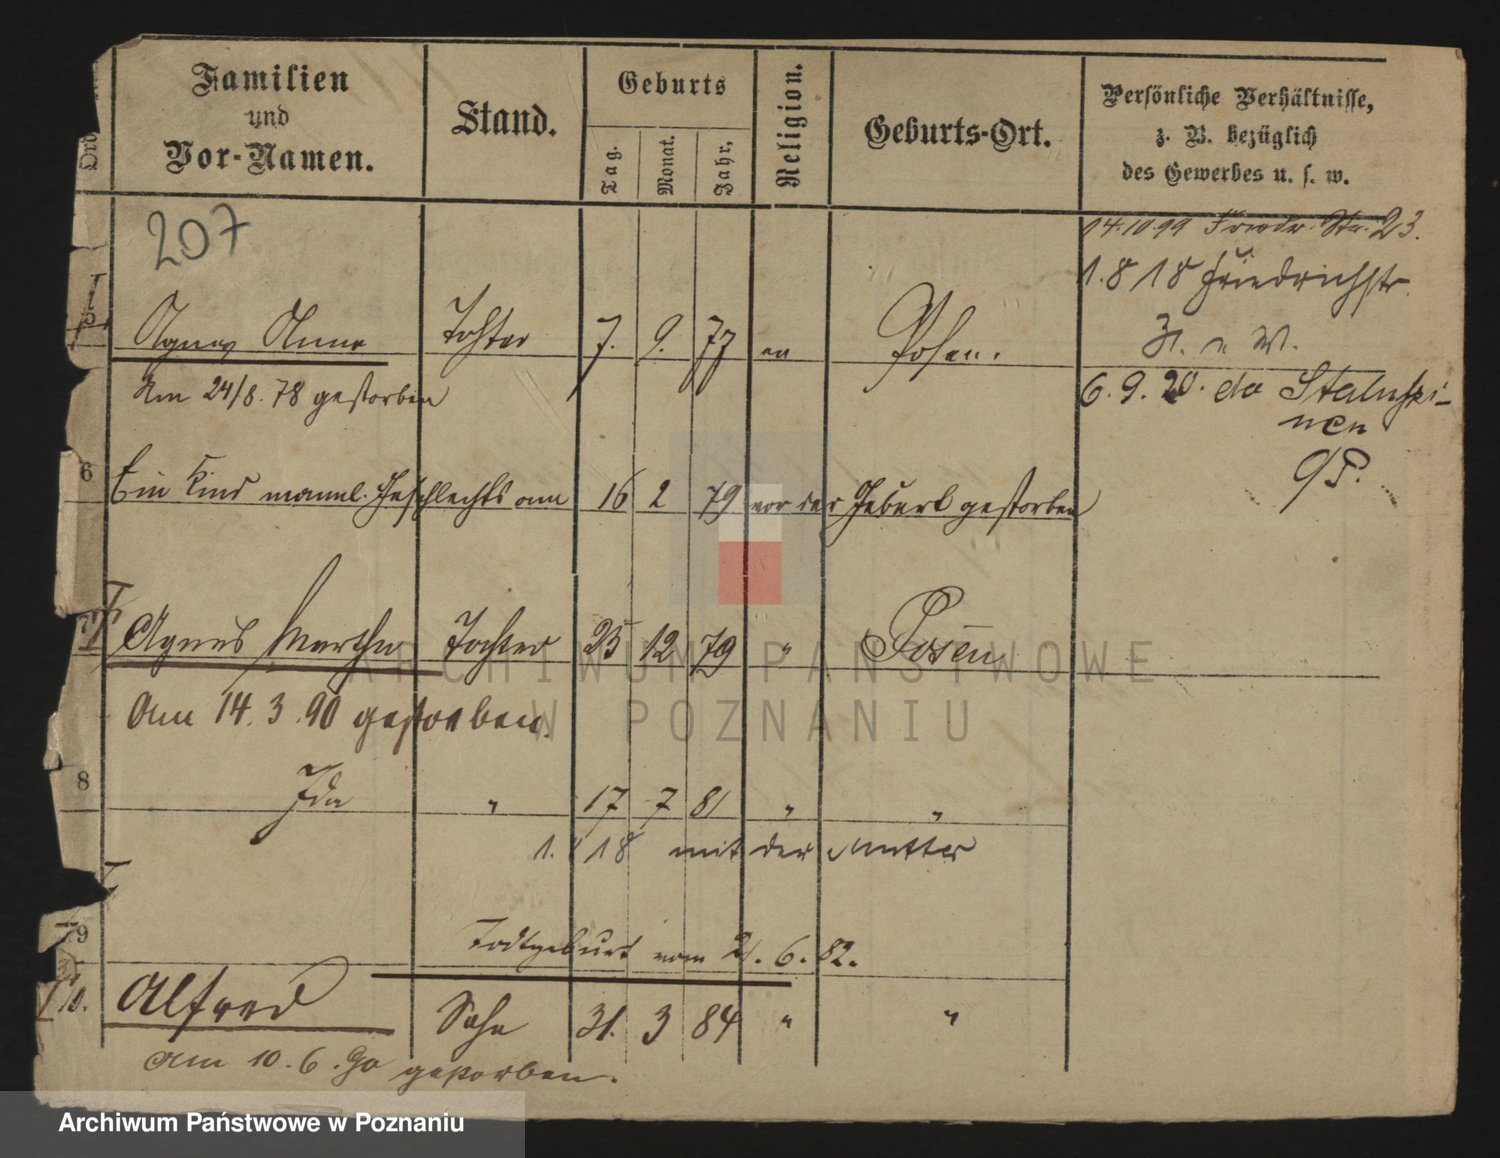 Familien
und
Vor-Namen.
Stand.
Geburts
Tag.
Monat.
Jahr,
Religion.
Geburts-Ort.
Persönliche Verhältnisse,
z. B. bezüglich
des Gewerbes u. s. w.
207
14.10.99 Friedr. Str. 23.
1.8 18 Friedrichstr.
31. W.
Agnes Anna Tochter 7. 9. 77 ev Posen.
Am 24/8. 78 gestorben
6. 9. 20. do
6 Ein Kind männl. Geschlechts am 16 2 79 vor der Geburt gestorben
Agnes Martha Tochter 25 12 79 " Posen
Am 14. 3. 90 gestorben.
8 Ida " 17 7 81 " "
1. 8 18 mit der Mutter
9 Todtgeburt vom 21. 6. 82.
10. Alfred Sohn 31. 3 84 " "
Am 10. 6. 90 gestorben.
ARCHIWUM PAŃSTWOWE
W POZNANIU
Archiwum Państwowe w Poznaniu